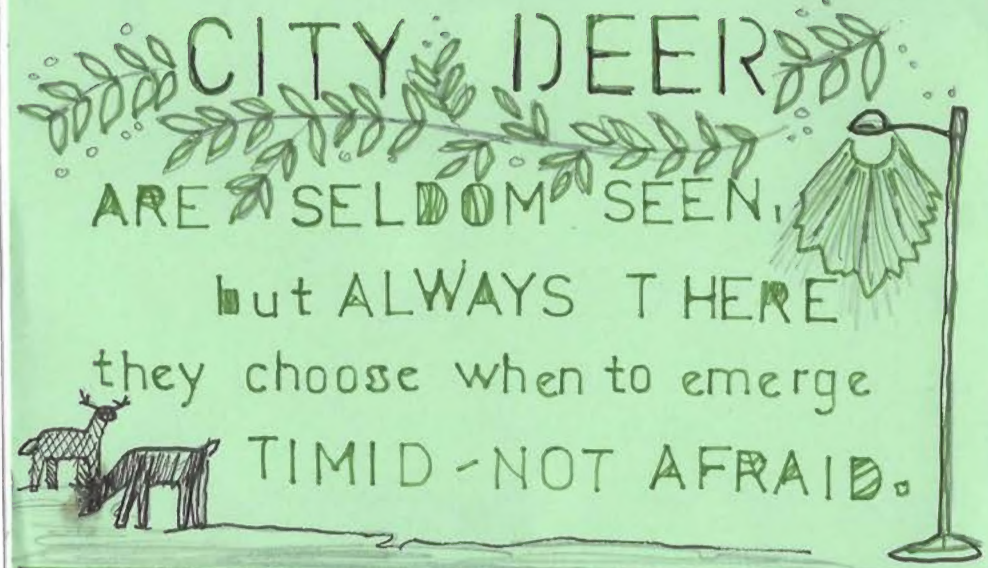 CITY DEER
ARE SELDOM SEEN,
but ALWAYS THERE
they choose when to emerge
TIMID - NOT AFRAID.